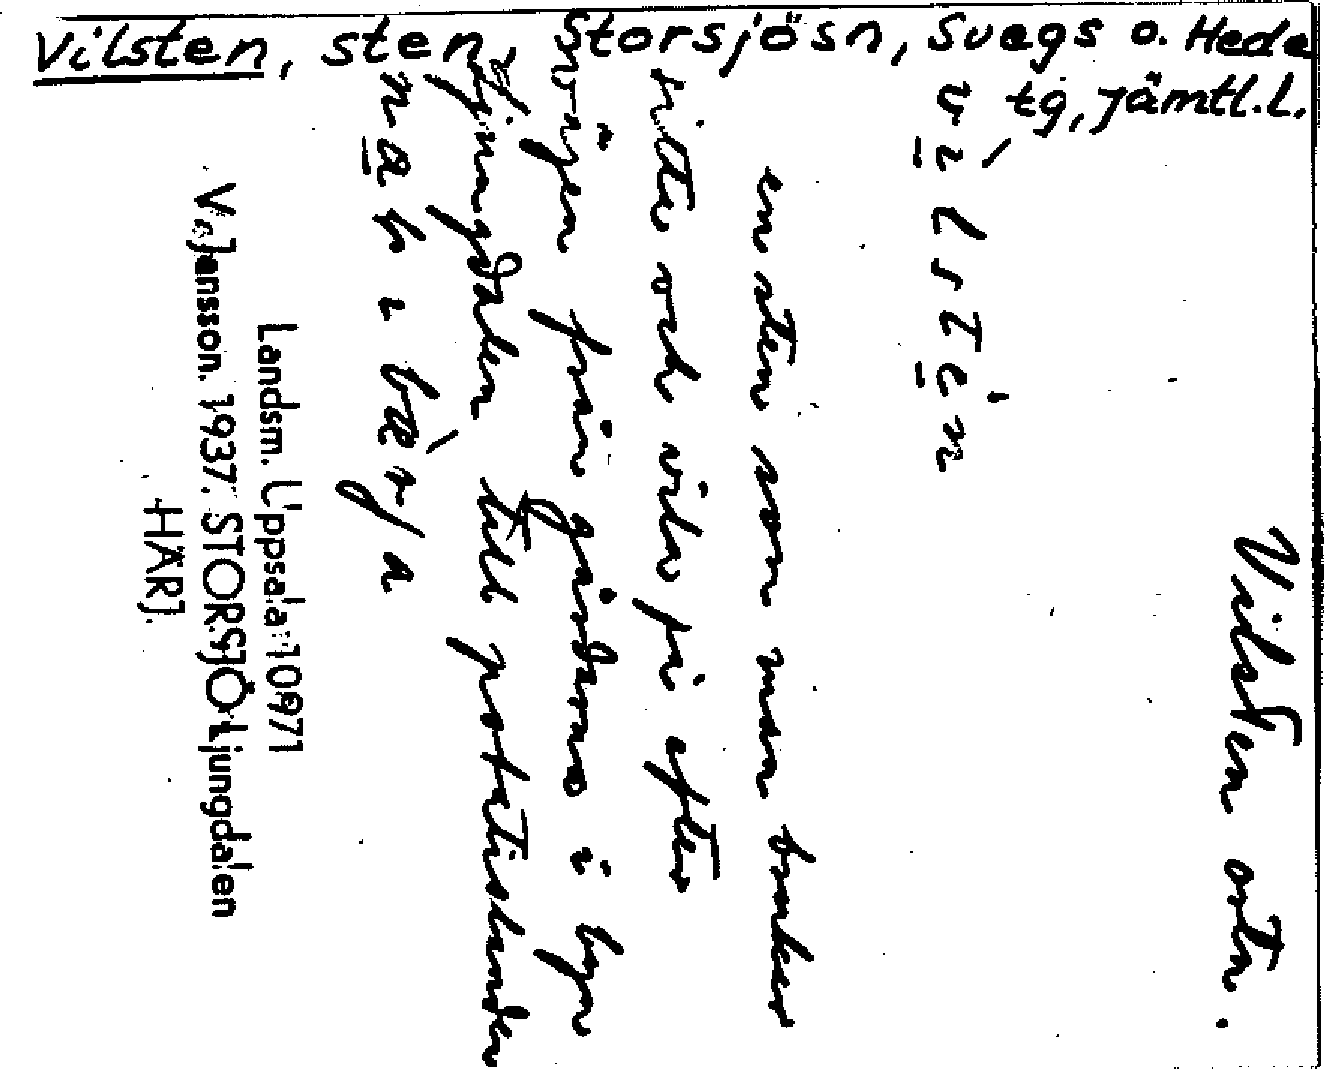 Vilsten, sten, Storsjösn, Svegs o. Hede
tg, Jämtl.l.
Vilsten ortn.
vilstén
en sten som man brukar
sitta och vila på efter
vägen från gårdarna i byn
Ljungdalen till potatislanden
Landsm. Uppsala 10971
V. Jansson. 1937. STORSJÖ Ljungdalen
HÄRJ.